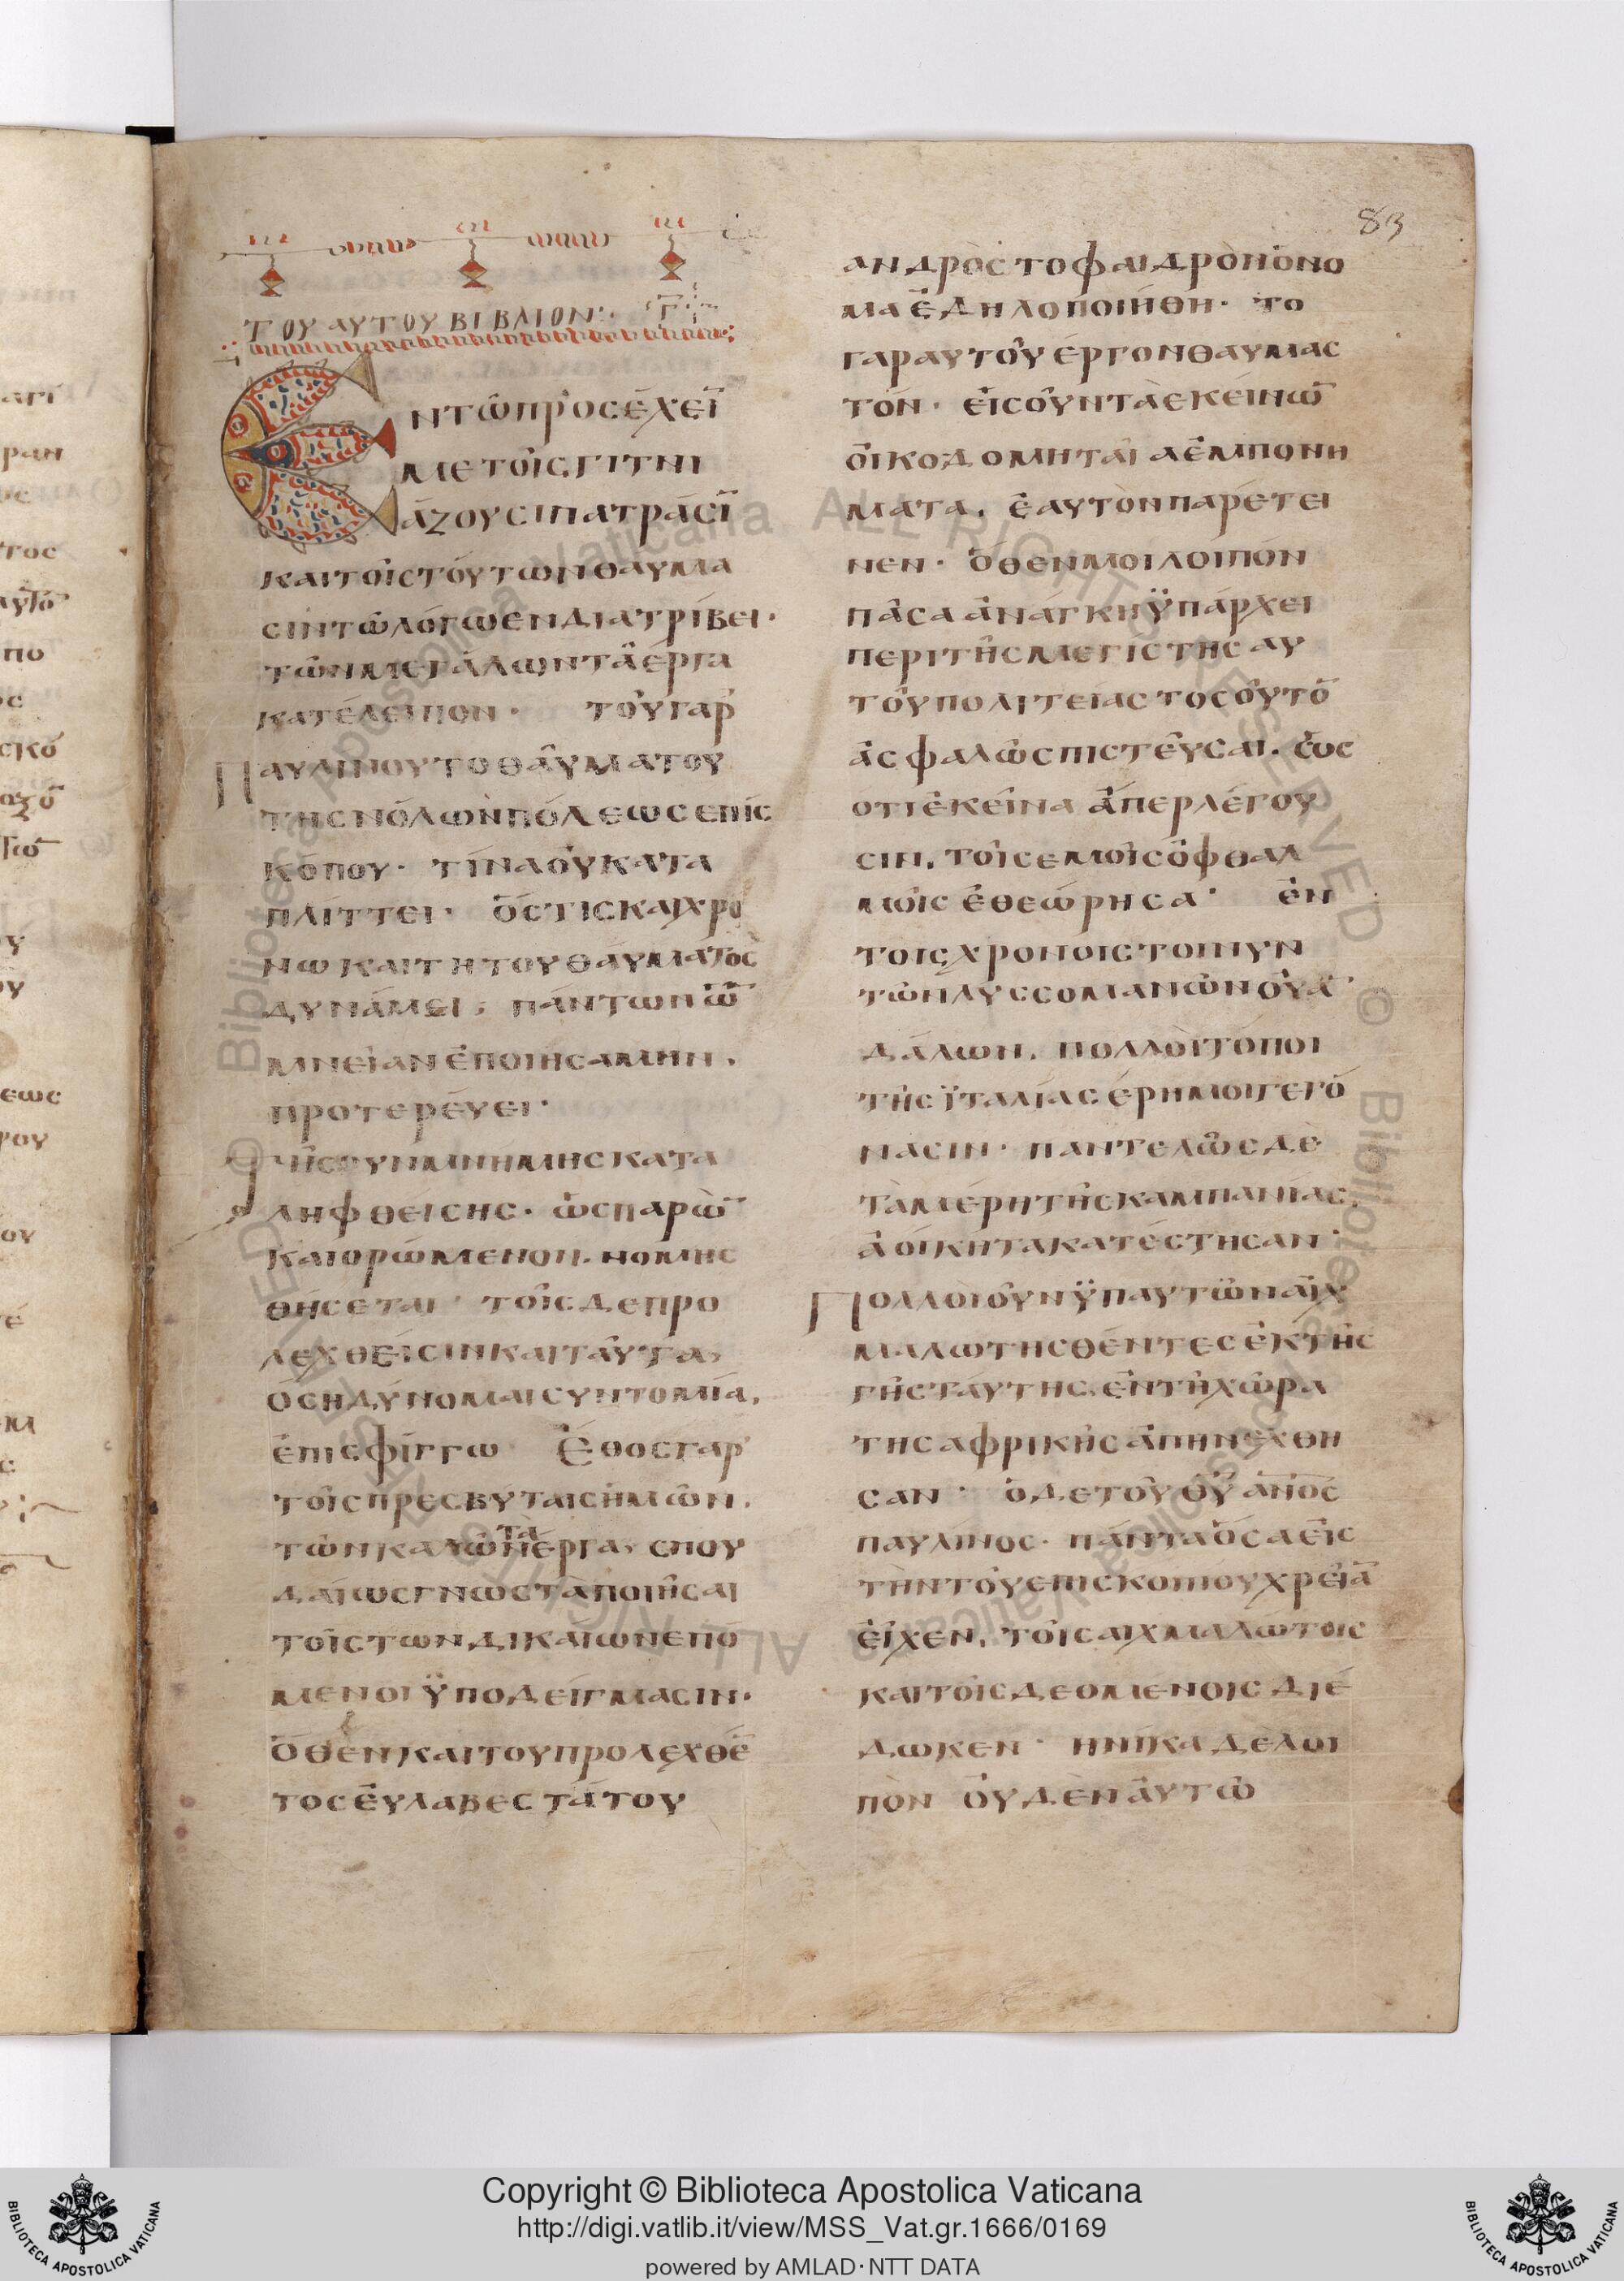 83
ΤΟΥ ΑΥΤΟΥ ΒΙΒΛΙΟΝ Γ
ΕΝΤῶΠΡΟΣΕΧΕῖ
ΜΕΤΟῖΣΓΙΤΝΙ
ΆΖΟΥΣΙΠΑΤΡΆΣῖ
ΚΑΙΤΟῖΣΤΟΎΤΩΝΘΑΥΜΑ
ΣΙΝΤῶΛΌΓΩΕΝΔΙΑΤΡΊΒΕΙ·
ΤῶΝΜΕΓΆΛΩΝΤΑΈΡΓΑ
ΚΑΤΈΛΕΙΠΟΝ· ΤΟΥΓΑΡ
ΠΑΥΛΙΝΟΥΤΟΘΑΥΜΑΤΟΥ
ΤΗΣΝΌΛΩΝΠΌΛΕΩΣΕΠΊΣ
ΚΌΠΟΥ· ΤΊΝΑΟΥΚΑΤΑ
ΠΛΊΤΤΕΙ· ὍΣΤΙΣΚΑΙΧΡΟ
ΝΩΚΑΙΤΗΤΟΥΘΑΎΜΑΤΟΣ
ΔΥΝΆΜΕΙ, ΠΆΝΤΩΝὧ̄
ΜΝΕΊΑΝἘΠΟΙΗΣΑΜΗΝ.
ΠΡΟΤΕΡΕΎΕΙ·
ΤῆΣΟΥΝΜΝΗΜΗΣΚΑΤΑ
ΛΗΦΘΕΙΣΗΣ· ὩΣΠΑΡῺ̄
ΚΑΙΟΡΏΜΕΝΟΝ. ΝΟΜΗΣ
ΘΉΣΕΤΑΙ· ΤΟῖΣΔΕΠΡΟ
ΛΕΧΘΕῖΣΙΝΚΑΙΤΑΥΤΑ,
ΌΣΗΔΎΝΟΜΑΙΣΥΝΤΟΜΊΑ,
ἘΠΙΣΦΊΓΓΩ ἜΘΟΣΓΑΡ
ΤΟῖΣΠΡΕΣΒΥΤΑΙΣΗΜῶΝ.
ΤῶΝΚΑΛῶΝΤᾺΈΡΓΑ, ΣΠΟΥ
ΔΑΊΩΣΓΝΩΣΤᾺΠΟΙῆΣΑΙ
ΤΟῖΣΤΩΝΔΙΚΑΊΩΝΕΠΌ
ΜΕΝΟΙΫΠΟΔΕΊΓΜΑΣΙΝ·
ὍΘΕΝΚΑΙΤΟΥΠΡΟΛΕΧΘΈ̄
ΤΟΣΕΥΛΑΒΕΣΤΆΤΟΥ
ΑΝΔΡῸΣΤΟΦΑΙΔΡῸΝΌΝΟ
ΜΑἘΔΗΛΟΠΟΙΉΘΗ· ΤΟ
ΓΑΡΑΥΤΟΥΈΡΓΟΝΘΑΥΜΑΣ
ΤΌΝ· ΕἸΣΟΥΝΤᾺΕΚΕΊΝῶ̄
ΟἸΚΟΔΟΜΗΤΑΙΑἘΜΠΟΝΗ
ΜΑΤΑ, ἘΑΥΤῸΝΠΑΡΈΤΕΙ
ΝΕΝ· ὍΘΕΝΜΟΙΛΟΙΠΌΝ
ΠᾶΣΑἈΝΆΓΚΗΫΠΆΡΧΕΙ
ΠΕΡΙΤῆΣΜΕΓΙΣΤΗΣΑΥ
ΤΟΥΠΟΛΙΤΕΊΑΣΤΟΣΟΥΤΌ̄
ἈΣΦΑΛῶΣΠΙΣΤΕΥΣΑΙ. ἝΩΣ
ΟΤΙἘΚΕΊΝΑ ἍΠΕΡΛΈΓΟΥ
ΣΙΝ. ΤΟῖΣΕΜΟῖΣΌΦΘΑΛ
ΜΟῖΣἘΘΕΏΡΗΣΑ· ἘΝ
ΤΟΙΣΧΡΟΝΟΙΣΤΟΙΝΥΝ
ΤῶΝΛΥΣΣΟΜΑΝῶΝΟΥᾺ̄
ΔΆΛΩΝ. ΠΟΛΛΟῚΤΌΠΟΙ
ΤῆΣΪΤΑΛΊΑΣΈΡΗΜΟΙΓΕΓΌ
ΝΑΣΙΝ· ΠΑΝΤΕΛῶΣΔῈ
ΤᾺΜΈΡΗΤῆΣΚΑΜΠΑΝΊΑΣ.
ἈΟΊΚΗΤΑΚΑΤΈΣΤΗΣΑΝ·
ΠΟΛΛΟῚΟΥΝΫΠΑΥΤῶΝΑΙΧ
ΜΑΛΩΤΗΣΘΈΝΤΕΣἘΚΤῆΣ
ΓῆΣΤΑΎΤΗΣ. ἘΝΤῆΧΏΡΑ
ΤΗΣΑΦΡΙΚῆΣἈΠΗΝΈΧΘΗ
ΣΑΝ· ὉΔΕΤΟΥΘῩΑΝ̄Ο̄Σ
ΠΑΥΛΙΝΟΣ· ΠΆΝΤΑὍΣΑΕἸΣ
ΤῊΝΤΟΥΕΠΙΣΚΟΠΙΟΥΧΡΕΊᾹ
ΕἾΧΕΝ, ΤΟῖΣΑΙΧΜΑΛΏΤΟΙΣ
ΚΑΙΤΟῖΣΔΕΟΜΈΝΟΙΣΔΙΈ
ΔΩΚΕΝ· ΗΝΊΚΑΔῈΛΟΙ
ΠῸΝ ΟΥΔῈΝΑΥΤῶ
Copyright © Biblioteca Apostolica Vaticana
http://digi.vatlib.it/view/MSS_Vat.gr.1666/0169
powered by AMLAD·NTT DATA
BIBLIOTECA APOSTOLICA VATICANA
BIBLIOTECA APOSTOLICA VATICANA